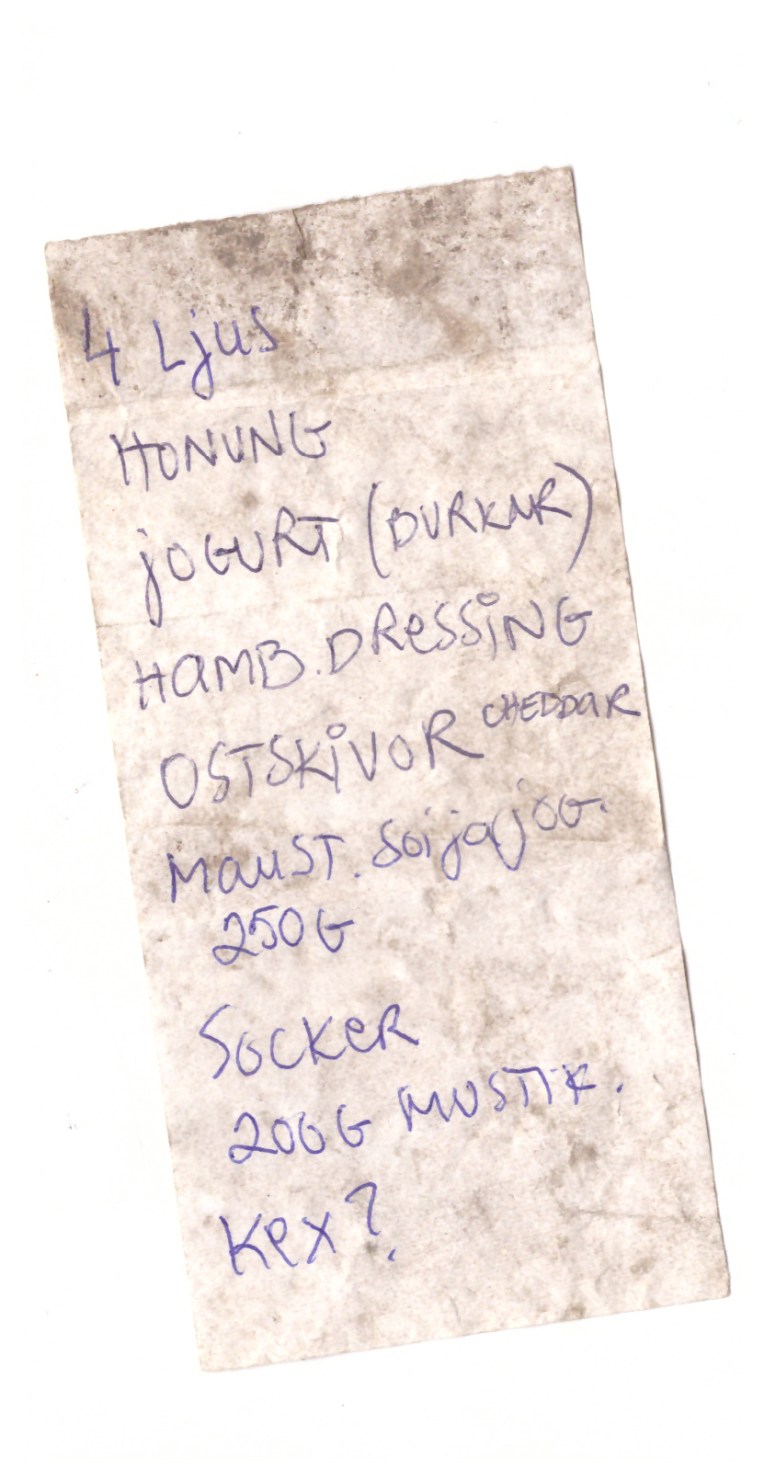 4 Ljus
HONUNG
jOGURT (BURKAR)
HaMB. DReSSiNG
OSTSKiVOR CHEDDaR
MauST. Soijajog.
250G
SOCKeR
200G MUSTIK.
Kex?